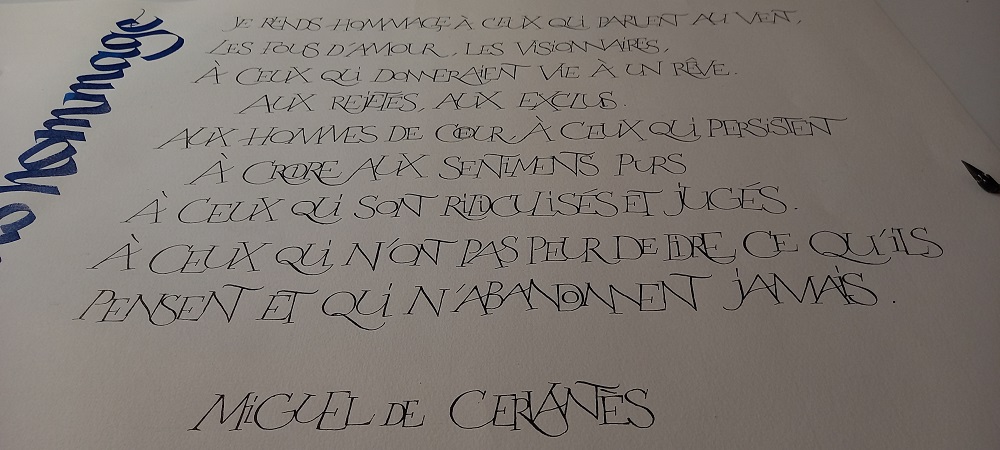 Hommage
JE RENDS HOMMAGE À CEUX QUI PARLENT AU VENT,
LES FOUS D'AMOUR, LES VISIONNAIRES,
À CEUX QUI DONNERAIENT VIE À UN RÊVE.
AUX REJETÉS, AUX EXCLUS.
AUX HOMMES DE CŒUR, À CEUX QUI PERSISTENT
À CROIRE AUX SENTIMENTS PURS
À CEUX QUI SONT RIDICULISÉS ET JUGÉS.
À CEUX QUI N'ONT PAS PEUR DE DIRE CE QU'ILS
PENSENT ET QUI N'ABANDONNENT JAMAIS.
MIGUEL DE CERVANTÈS